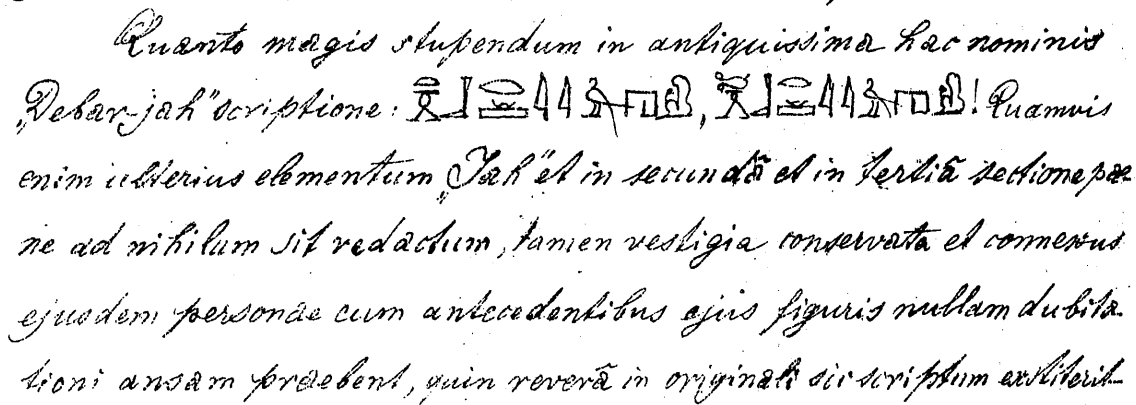 Quanto magis stupendum in antiquissima hac nominis
„Debar-jah" scriptione: , ! Quamvis
enim ulterius elementum „Jah" et in secundâ et in tertiâ sectione pae
ne ad nihilum sit redactum, tamen vestigia conservata et connexus
ejusdem personae cum antecedentibus ejus figuris nullam dubita-
tioni ansam praebent, quin reverâ in originali sic scriptum exstiterit